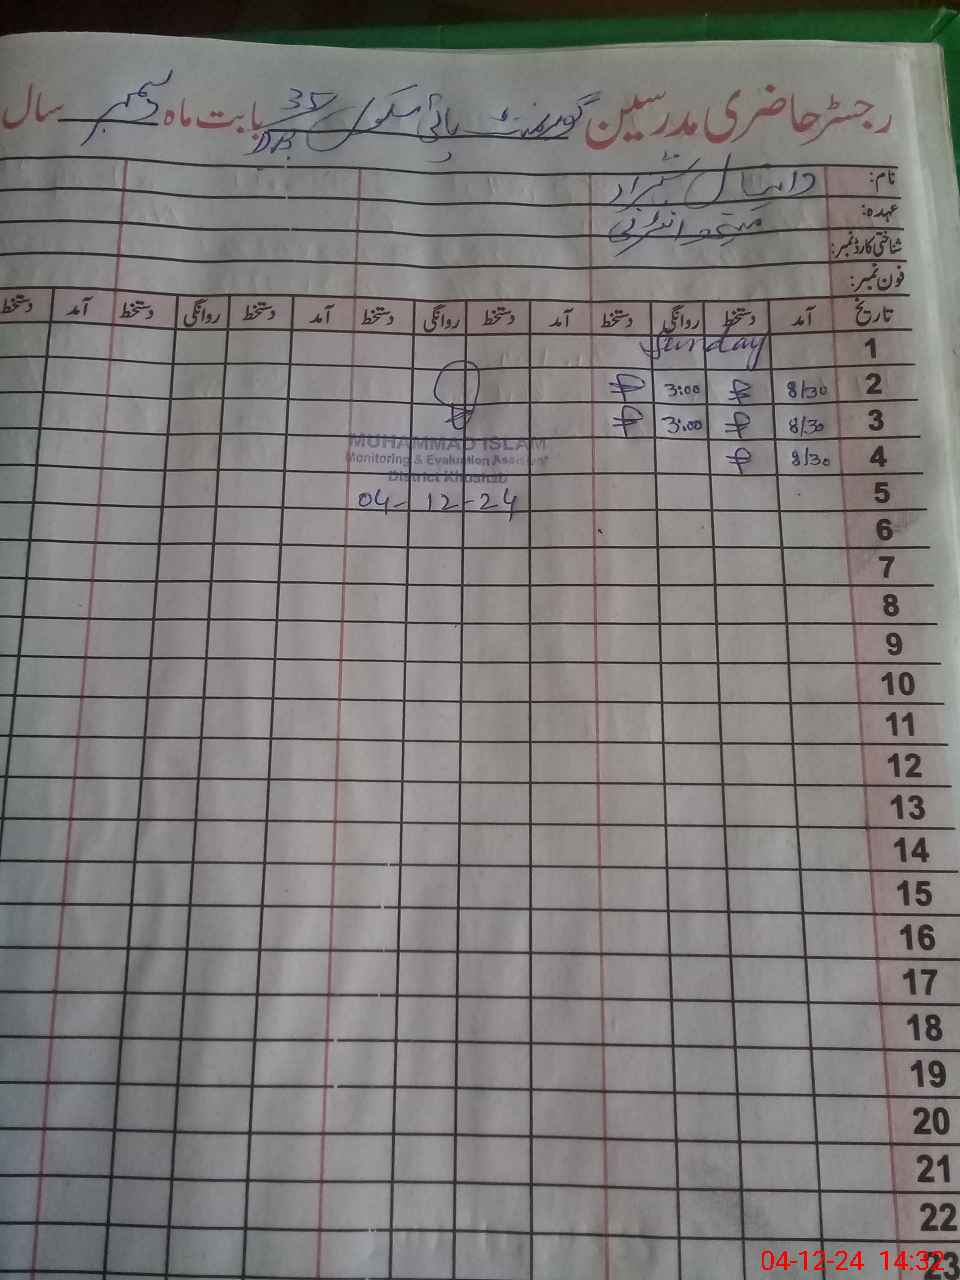 رجسٹر حاضری مدرسین گورنمنٹ ہائی سکول 35 DB بابت ماہ دسمبر سال
نام: دانیال شہزاد
عہدہ:
شناختی کارڈ نمبر:
فون نمبر:
تاریخ آمد دستخط روانگی دستخط آمد دستخط روانگی دستخط آمد دستخط روانگی دستخط آمد دستخط
1 Sunday
2 8/30 3:00
3 8/30 3:00
4 8/30
MUHAMMAD ISLAM
Monitoring & Evaluation Assistant
District Khushab
04-12-24
5
6
7
8
9
10
11
12
13
14
15
16
17
18
19
20
21
22
23
04-12-24 14:32